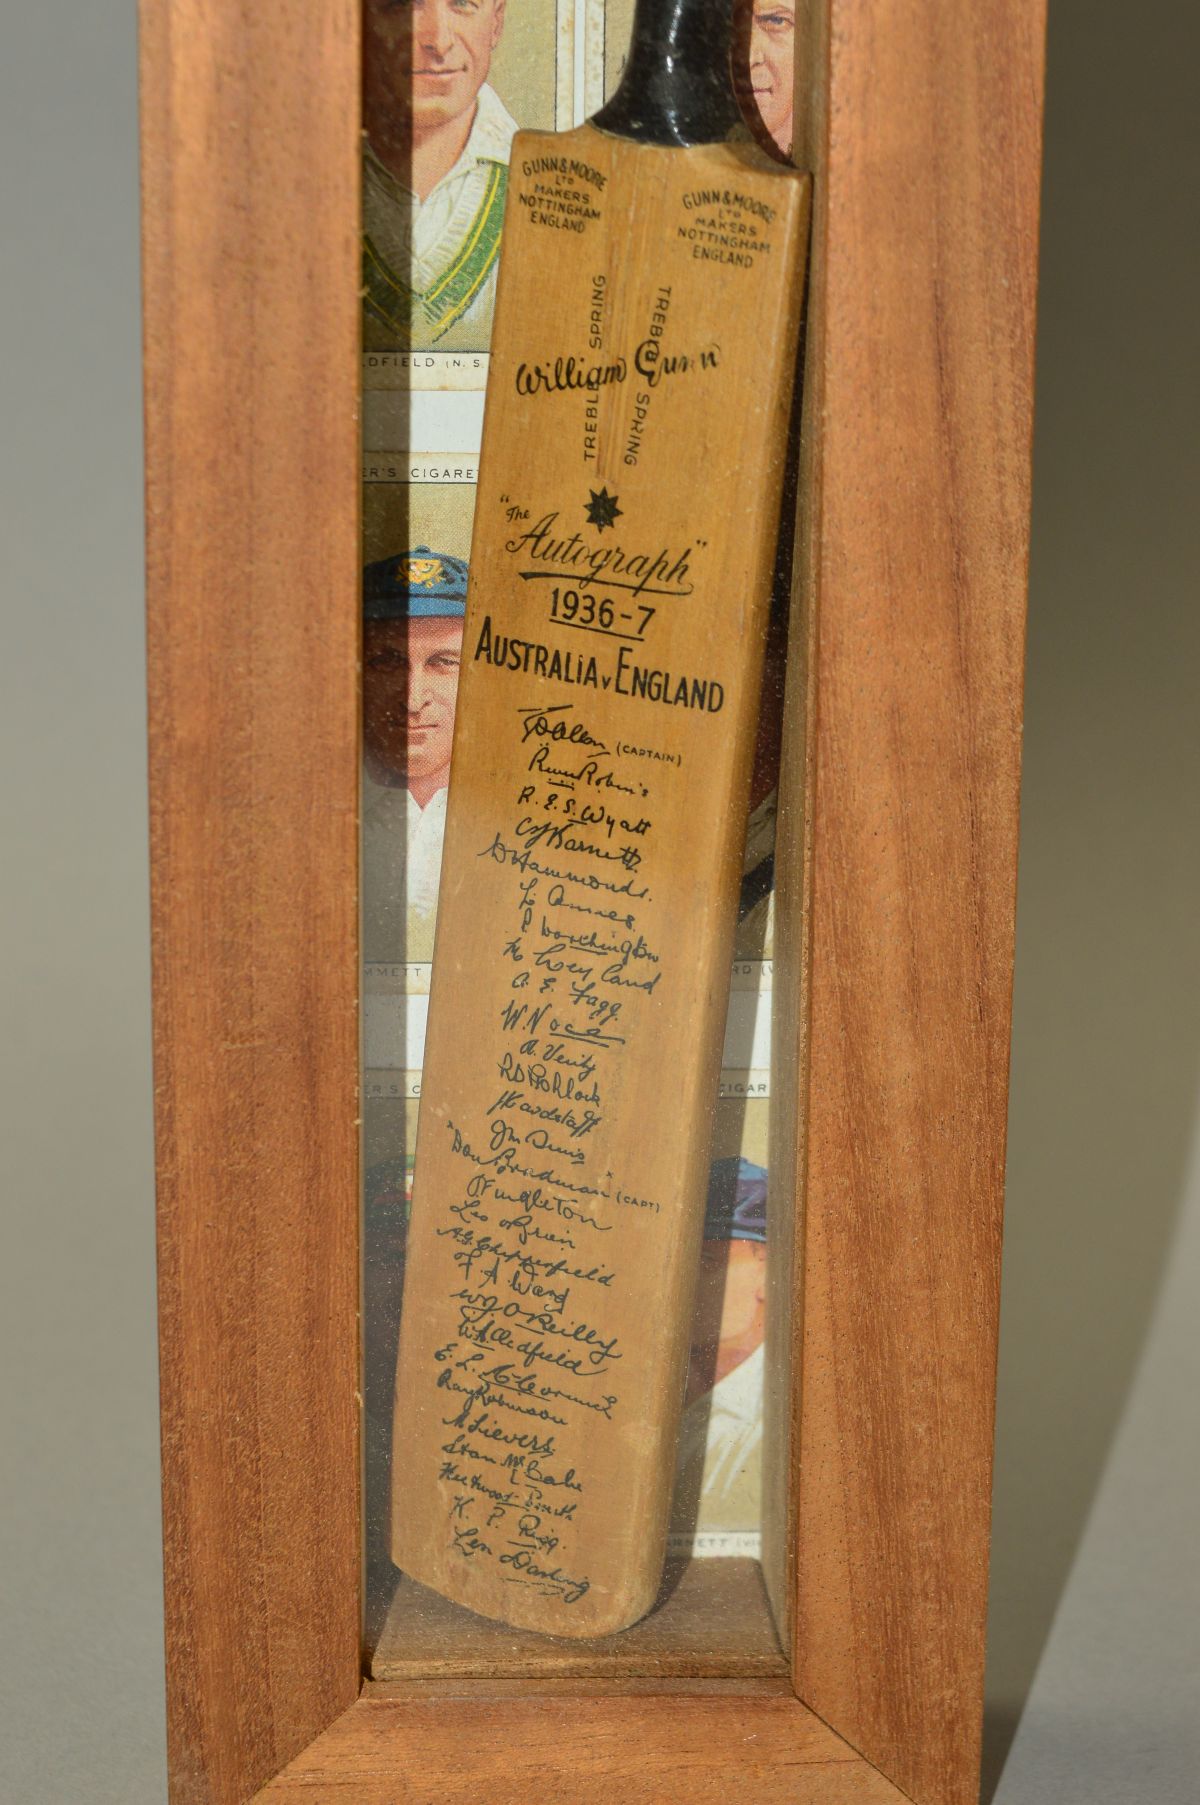 GUNN & MOORE
LTD
MAKERS
NOTTINGHAM
ENGLAND
GUNN & MOORE
LTD
MAKERS
NOTTINGHAM
ENGLAND
TREBLE SPRING
TREBLE SPRING
William Gunn
"The
Autograph"
1936-7
AUSTRALIA v ENGLAND
(CAPTAIN)
R. E. S. Wyatt
CJ Barnett
Hammond
L. Ames
Worthington
M Leyland
A. E. Fagg
W. Voce
H. Verity
J Hardstaff
Jm Sims
"Don Bradman" (CAPT)
J Fingleton
Leo O'Brien
A.G. Chipperfield
F A Ward
W J O'Reilly
W A Oldfield
E. L. McCormick
Ray Robinson
M Sievers
Stan McCabe
Fleetwood-Smith
K. E. Rigg
Len Darling
LDFIELD (N. S.
ER'S CIGARE
MMETT (
RD (V
ER'S C
CIGAR
RNETT (VI